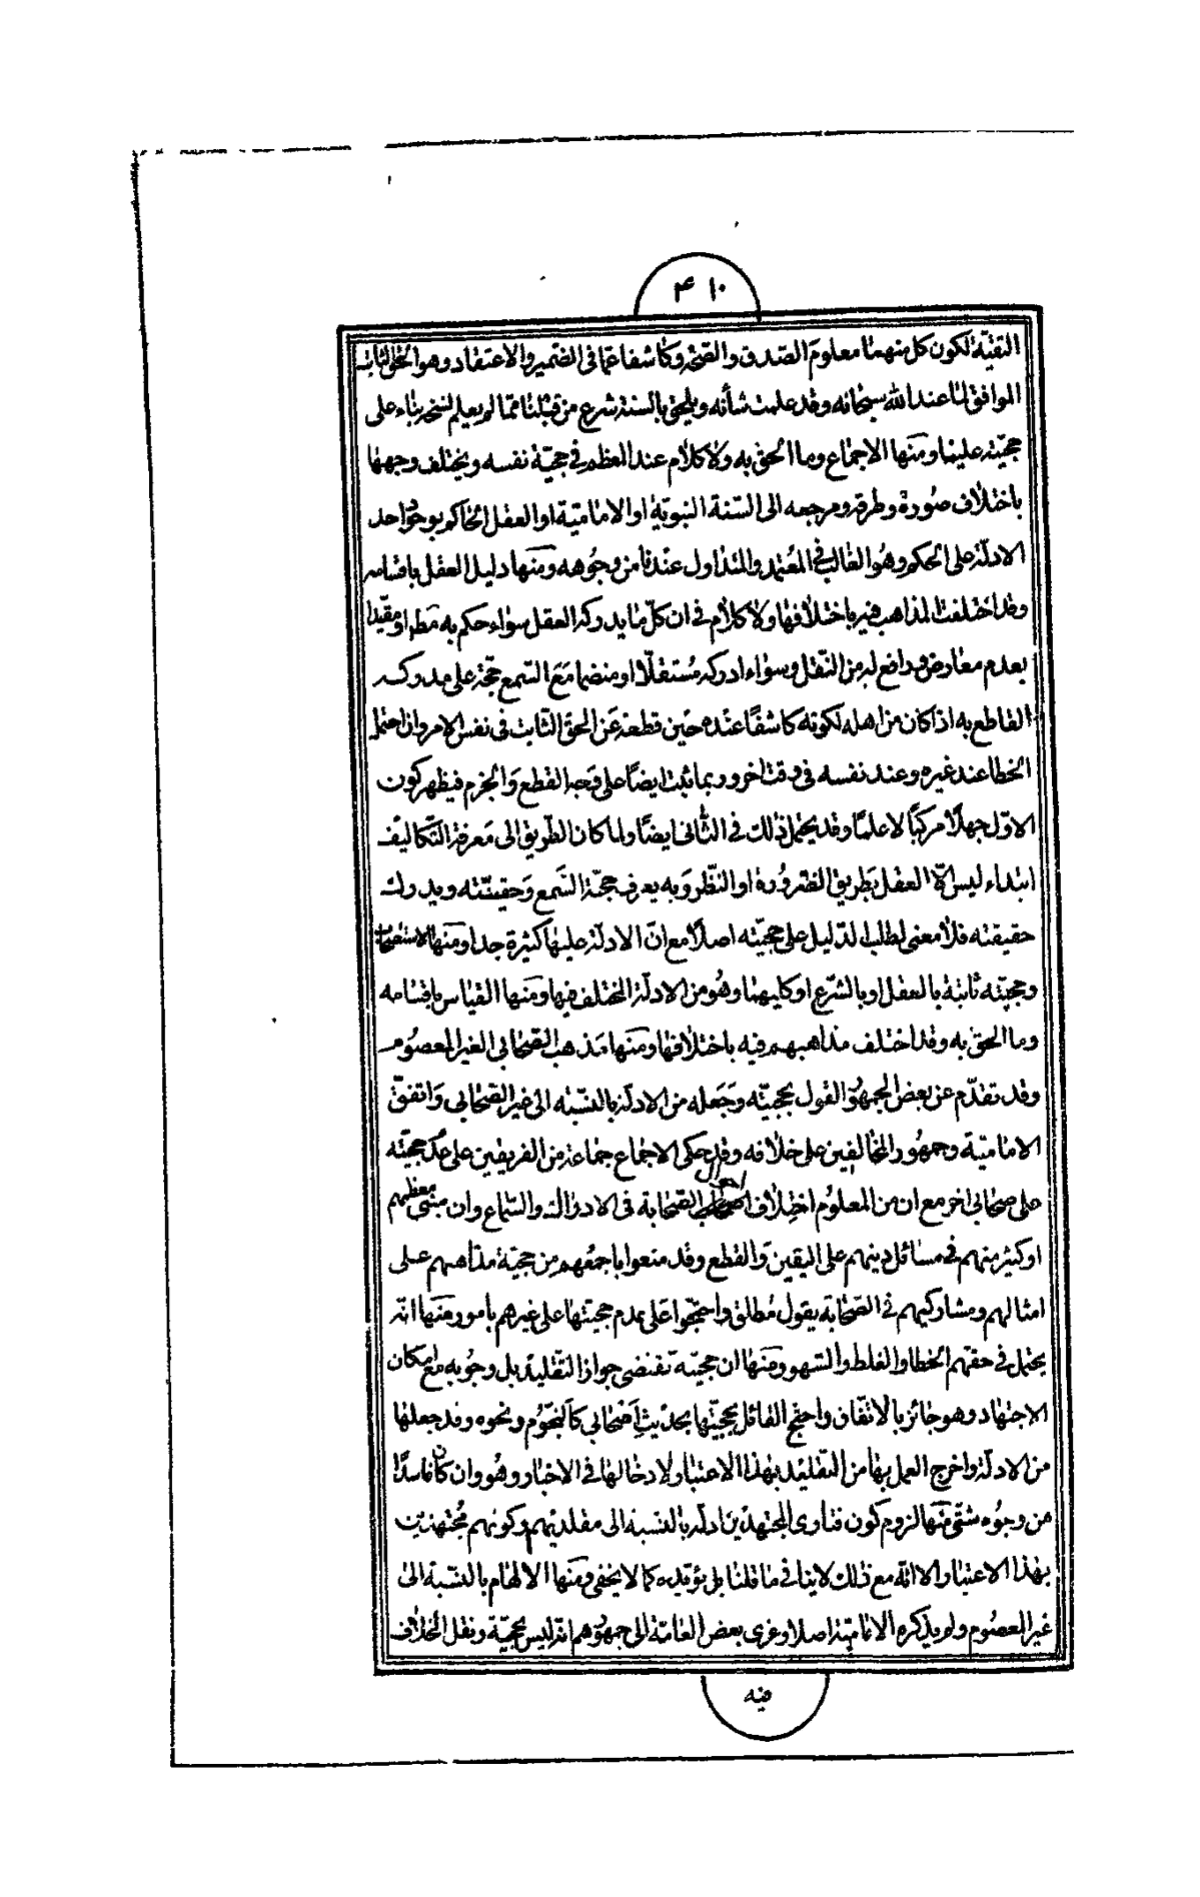 ۴۱۰
التقيّة لكون كل منهما معلوم الصّدق والصّحّة وكاشفا عمّا فى الضّمير والاعتقاد وهو الحق الثابت
الموافق لما عند الله سبحانه وقد علمت شأنه ويلحق بالسنة شرع من قبلنا ممّا لم يعلم نسخه بناء على
حجيّته علينا ومنها الاجماع وما الحق به ولا كلام عند المعظم فى حجيّة نفسه ويختلف وجهها
باختلاف صوره وطرقه ومرجعه الى السّنة النبويّة او الاماميّة او العقل الحاكم بوجود احد
الادلّة على الحكم وهو الغالب فى المعتمد والمتداول عندنا من وجوهه ومنها دليل العقل باقسامه
وقد اختلفت المذاهب فيه باختلافها ولا كلام فى ان كلّ ما يدركه العقل سواء حكم به مطلقا او مقيّدا
بعدم معارض ودافع له من النّقل وسواء ادركه مستقلّا او منضما مع السّمع حجّة على مدركه
القاطع به اذا كان من اهله لكونه كاشفًا عنده حين قطعه عن الحق الثّابت فى نفس الامر وان احتمل
الخطا عند غيره وعند نفسه فى وقت اخر وربما يثبت ايضًا على وجه القطع والجزم فيظهر كون
الاوّل جهلًا مركّبًا لا علمًا وقد يحتمل ذلك فى الثّانى ايضًا ولما كان الطّريق الى معرفة التّكاليف
ابتداء ليس الّا العقل بطريق الضّرورة او النّظر وبه يعرف حجيّة السّمع وحقيّته ويدرك
حقيقته فلا معنى لطلب الدّليل على حجيّته اصلًا مع انّ الادلّة عليها كثيرة جدا ومنها الاستصحاب
وحجيّته ثابتة بالعقل او بالشّرع او كليهما وهو من الادلّة المختلف فيها ومنها القياس باقسامه
وما الحق به وقد اختلف مذاهبهم فيه باختلافها ومنها مذهب الصّحابى الغير المعصوم
وقد تقدّم عن بعض الجمهور القول بحجيّته وجعله من الادلّة بالنّسبة الى غير الصّحابى واتفق
الاماميّة وجمهور المخالفين على خلافه وقد حكى الاجماع جماعة من الفريقين على عدم حجيّته
على صحابى اخر مع ان من المعلوم اختلاف احوال الصّحابة فى الادراك والسّماع وان مبنى معظمهم
او كثير منهم فى مسائل دينهم على اليقين والقطع وقد منعوا باجمعهم من حجيّة مذاهبهم على
امثالهم ومشاركيهم فى الصّحابة بقول مطلق واحتجّوا على عدم حجيّتها على غيرهم بامور منها انّه
يحتمل فى حقهم الخطا والغلط والسّهو ومنها ان حجيّته تقتضى جواز التّقليد بل وجوبه مع امكان
الاجتهاد وهو جائز بالاتّفاق واحتج القائل بحجيّتها بحديث اصحابى كالنّجوم ونحوه وقد جعلها
من الادلّة واخرج العمل بها من التّقليد بهذا الاعتبار ولادخالها فى الاخبار وهو وان كان فاسدًا
من وجوه شتّى منها لزوم كون فتاوى المجتهدين ادلّة بالنّسبة الى مقلديهم وكونهم مجتهدين
بهذا الاعتبار الا انّه مع ذلك لا ينافى ما قلنا بل يؤيّده كما لا يخفى ومنها الالهام بالنّسبة الى
غير المعصوم ولم يذكره الاماميّة اصلا وعزى بعض العامّة الى جمهورهم انّه ليس بحجيّة ونقل الخلاف
فيه